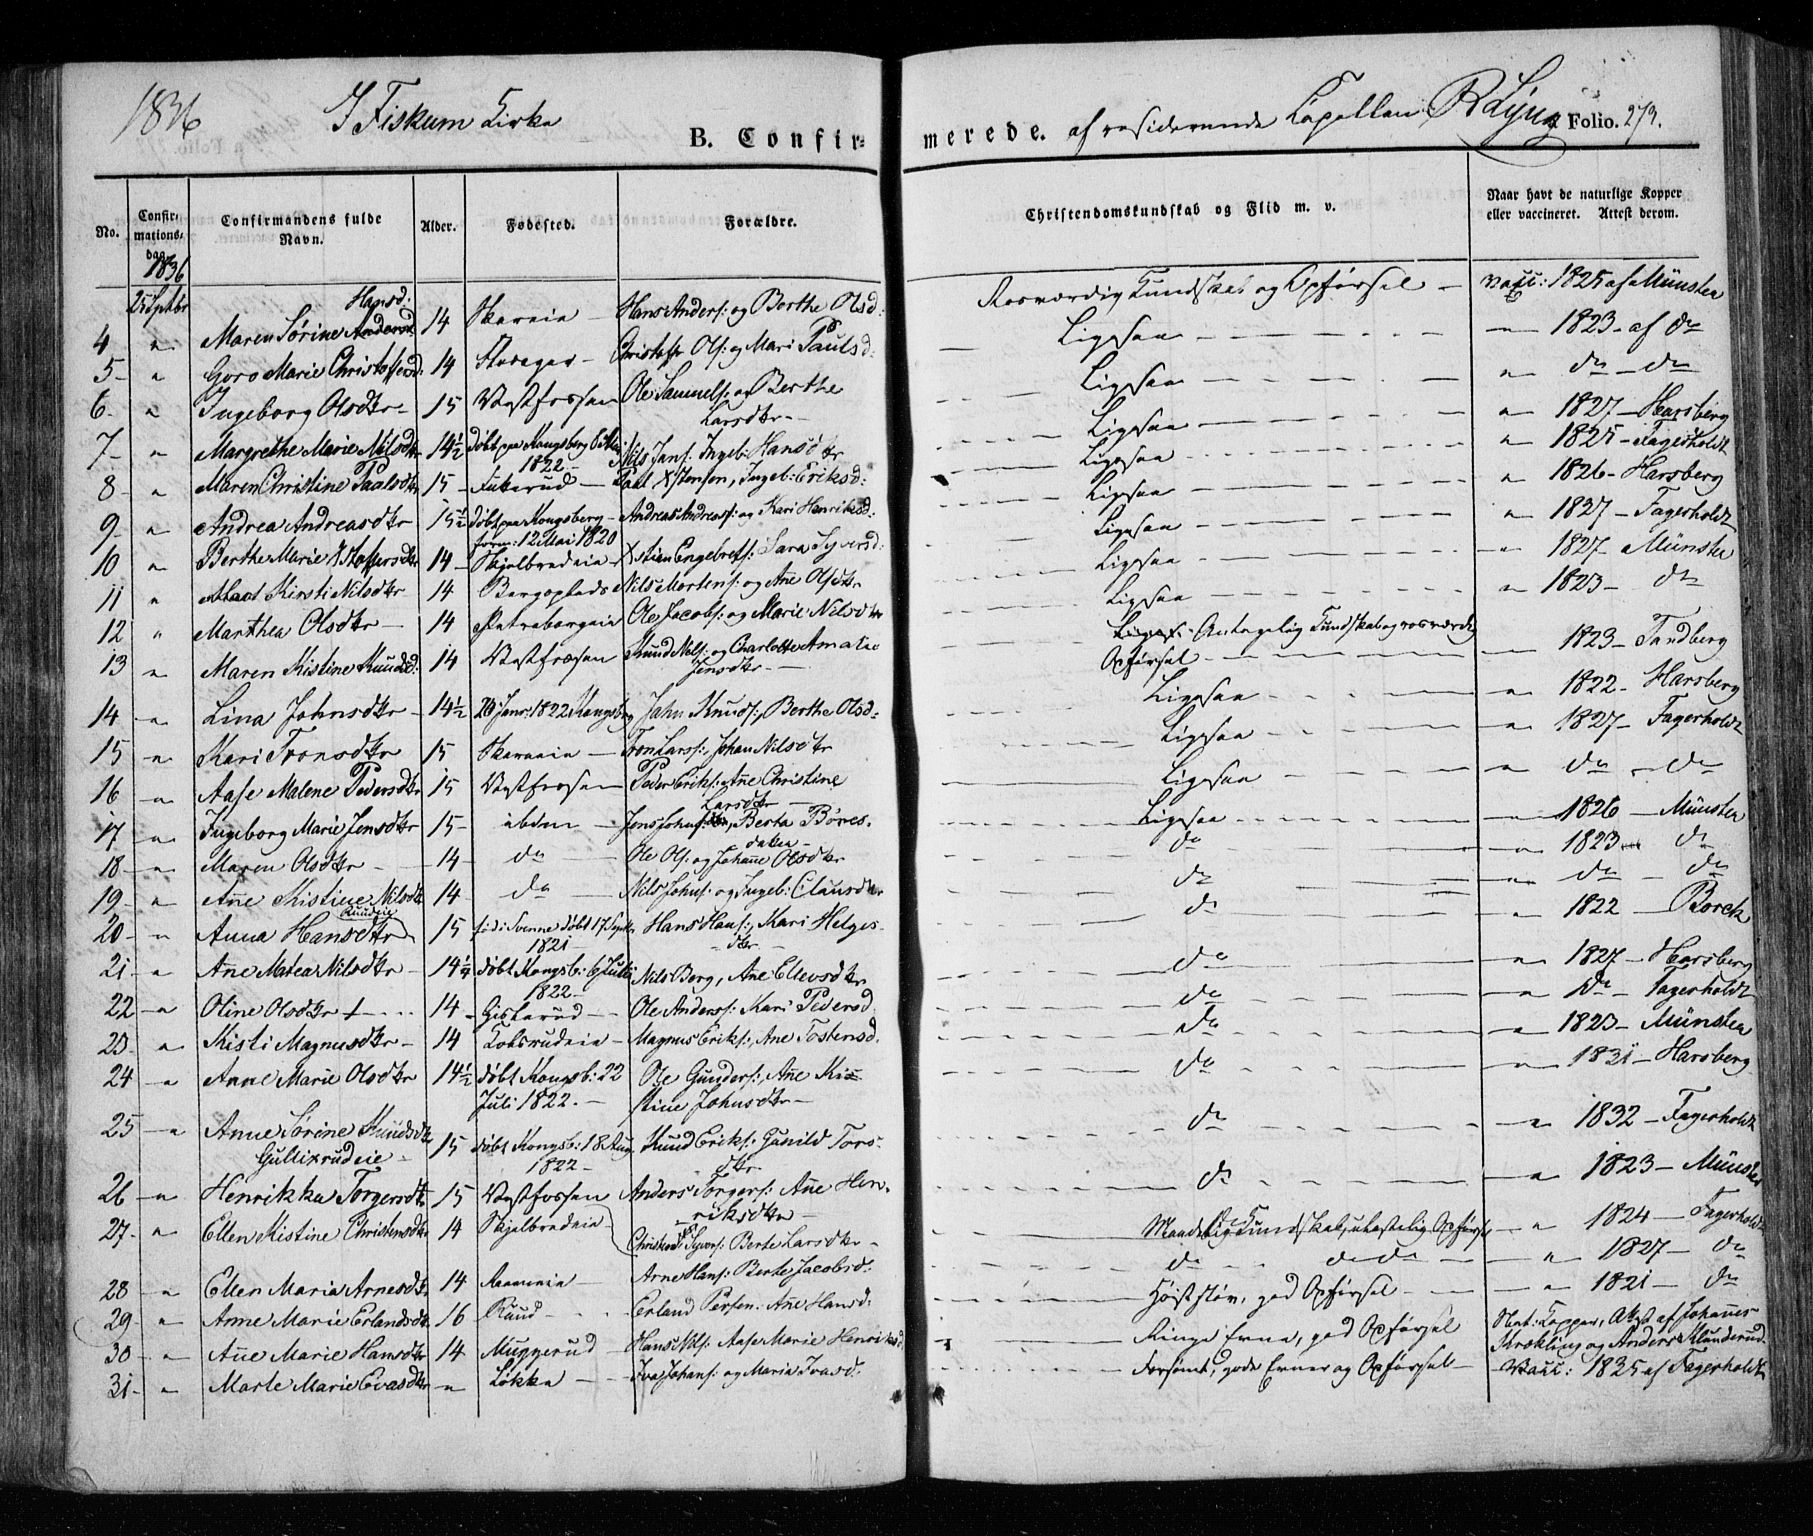 1836 I Fiskum Kirke
B. Confir- merede. af residerende Capellan R Lyng Folio. 273.
No. Confir-mations-dag Confirmandens fulde Navn. Alder. Fødested. Forældre. Christendomskundskab og Flid m. v. Naar havt de naturlige Kopper eller vaccineret. Attest derom.
1836
25 Septbr Hansd:
4 " Maren Sørine Andersd 14 Skaraeie – Hans Anders: og Berthe Olsd: Rosværdig Kundskab og Opførsel – vacc: 1825 af Münster
5 – " Goro Marie Christofersd: 14 – Christofer Ols: og Mari Paulsd: Ligesaa – " 1823 – af do
6 – " Ingeborg Olsdtr – 15 Vestfossen Ole Samuels: og Berthe Larsdtr – Ligesaa " do – do
7 – " Margrethe Marie Nilsdtr 14½ døbt paa Kongsberg 8 Mai 1822 – Nils Jans: Ingeb: Hansdtr Ligesaa " 1827 – Harsberg
8 " Maren Christine Paalsdtr 15 – Fukerud – Paal Xstensen, Ingeb: Eriksd: Ligesaa " 1825 – Fagerholdt
9 – " Andrea Andreasdtr 15½ døbt paa Kongsberg – Andreas Andreas: og Kari Henriksd: Ligesaa " 1826 – Harsberg
10 " Berthe Marie Xstoffersdtr 14 – Skjelbredeie – Xstian Engebrets: Sara Syversd: Ligesaa " 1827 – Fagerholdt
11 " Kirsti Nilsdtr 14 Bergsplads Nils Mortens: og Ane Olsdtr Ligesaa – 1827 – Münster
12 " Marthea Olsdtr – 14 Ole Jacobs: og Marie Nilsdtr Ligesaa " 1823 – do
13 – " Maren Kistine Knudsd: 14 Vestfossen Knud Nils: og Charlotte Amalie Jensdtr – Antagelig Kundskab og rosværdig Opførsel – 1823 – Tandberg
14 – " Lina Johnsdtr – 14½ Janr: 1822 Kongsberg John Knuds:, Berthe Olsd: Ligesaa " 1822 – Harsberg
15 – " Kari Tronsdtr 15 Skaraeie – Tron Lars: Johan Nilsdtr Ligesaa " 1827 – Fagerholdt
16 – " Aase Malene Pedersdtr 15 Vestfossen Peder Eriks: Ane Christine Larsdtr – Ligesaa " do – do
17 – " Ingeborg Marie Jensdtr 15 – ibdm – Jens Johns:, Berta Børes-datter – Ligesaa " 1826 – Münster
18 – " Maren Olsdtr – 14 – do – Ole Ols: og Johanne Olsdtr do – 1823 do
19 – " Ane Kistine Nilsdtr 14 – do – Nils Johns: og Ingeb: Clausdtr do " do – do
20 – " Anna Hansdtr (Ruudeie) 15 fød i Svenne døbt 17 Septbr 1821 – Hans Hans:, Kari Helges-dtr – do " 1822 – Borck
21 – " Ane Matea Nilsdtr – 14¼ døbt Kongsb: 6 Juli 1822 – Nils Berg, Ane Ellevsdtr do " 1827 – Harsberg
22 – " Oline Olsdtr + 14 – Gislerud – Ole Anders: Kari Pedersd do " do – Fagerholdt
23 – " Kisti Magnusdtr – 14 Kobsrudeie – Magnus Eriks:, Ane Tostensd. do " 1823 – Münster
24 – " Anne Marie Olsdtr 14½ døbt Kongsb: 22 Juli 1822 – Ole Gunders: Ane Ki-stine Johnsdtr – do – 1831 – Harsberg
25 – " Anne Sørine Knudsdtr Gullixrudeie – 15 døbt Kongsb: 18 Aug 1822 – Knud Eriks: Gunild Tors-dtr do – 1832 – Fagerholdt
26 – " Henrikka Torgersdtr 15 Vestfossen Anders Torgers: Ane Hen-riksdtr – do " 1823 – Münster
27 – " Ellen Kistine Christensdtr 14 Skjelbredeie – Christen Syvers: Berte Larsdtr – Maadelig Kundskab, ulastelig Opførsel – " 1824 – Fagerholdt
28 – " Ellen Maria Arnesdtr 14 – Arne Hans: Berte Jacobsd: do do do – " 1827 – do
29 – " Anne Marie Erlandsdtr 16 Ruud – Erland Persen: Ane Hansd: Høist sløv, god Opførsel – " 1821 – do
30 – " Ane Marie Hansdtr 14 Muggerud – Hans Nils: Aase Marie Henriksd Ringe Evne, god Opførsel Nat: Kopper, Attest af Johannes Krokling og Anders Klunderud
31 – " Marte Marie Evasdtr – " Løkka – Iva Johans: og Maria Ivasd: Forsømt, gode Evner og Opførsel – Vacc: 1835 af Fagerholdt